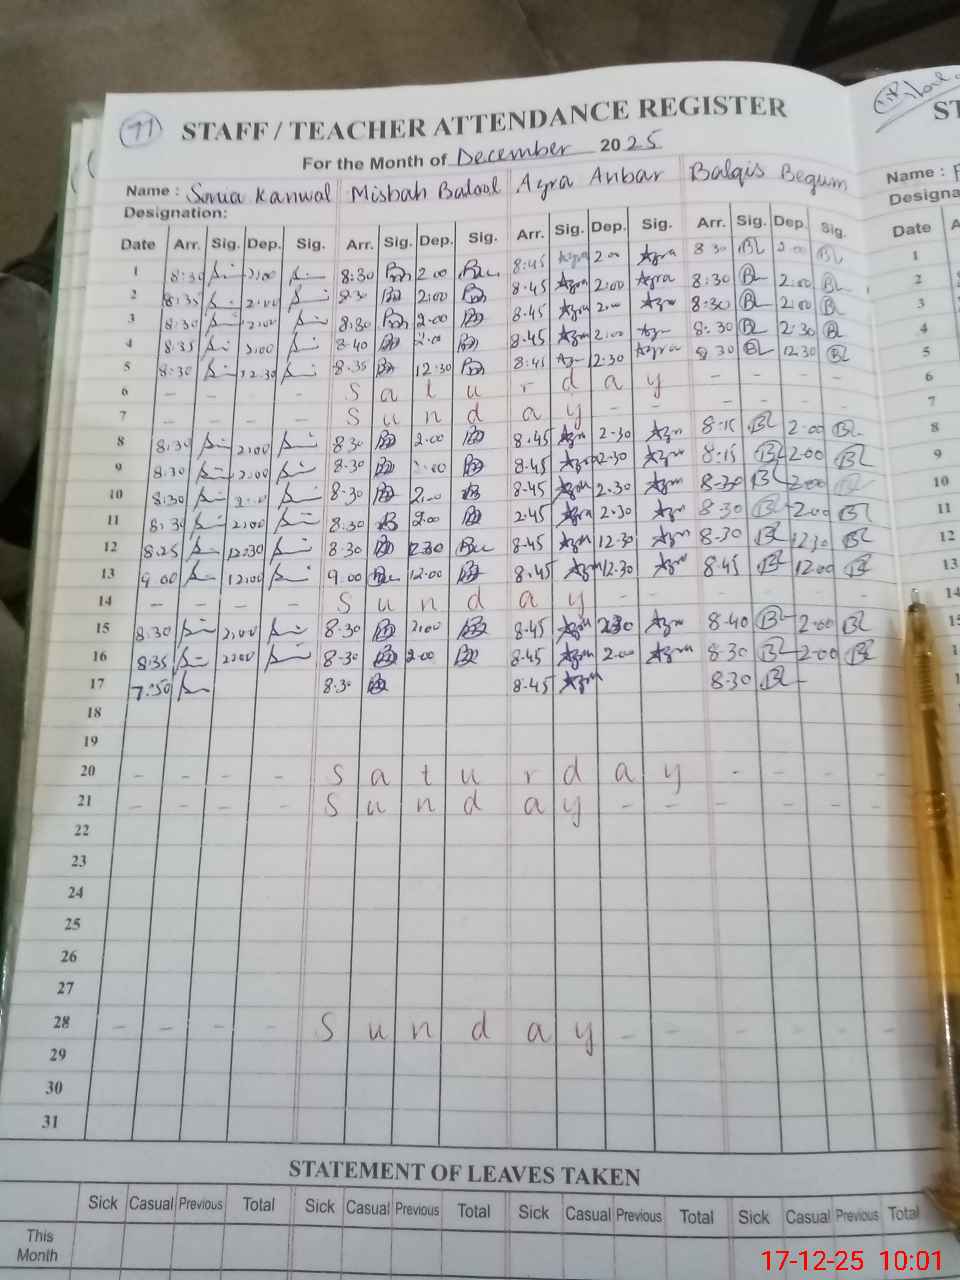 71
STAFF / TEACHER ATTENDANCE REGISTER
For the Month of December 2025
Name : Sonia Kanwal Misbah Batool Azra Anbar Balqis Begum
Designation:
Date Arr. Sig. Dep. Sig. Arr. Sig. Dep. Sig. Arr. Sig. Dep. Sig. Arr. Sig. Dep. Sig.
1 8:30 2:00 8:30 2:00 8:45 Azra 2:00 Azra 8:30 BL 2:00 BL
2 8:35 2:00 8:30 2:00 8:45 Azra 2:00 Azra 8:30 BL 2:00 BL
3 8:30 2:00 8:30 2:00 8.45 Azra 2:00 8:30 BL 2:00 BL
4 8:35 2:00 8.40 2:00 8.45 Azra 2:00 8:30 BL 2:30 BL
5 8:30 12.30 8.35 12.30 8:45 12:30 Azra 8 30 BL 12.30 BL
6 - - - - S a t u r d a y - - - -
7 - - - - S u n d a y - - - - - -
8 8:30 2:00 8.30 2.00 8.45 Azra 2-30 Azra 8-15 BL 2-00 BL
9 8:30 2:00 8-30 2.00 8-45 Azra 2-30 Azra 8-15 BL 2-00 BL
10 8:30 2:00 8-30 2.00 8-45 Azra 2.30 Azra 8-30 BL 2-00 BL
11 8:30 2:00 8:30 2:00 2.45 Azra 2-30 Azra 8-30 BL 2-00 BL
12 8:25 12:30 8-30 12.30 8-45 Azra 12-30 Azra 8-30 BL 12.30 BL
13 9:00 12:00 9.00 12.00 8.45 Azra 12.30 Azra 8-45 BL 12.00 BL
14 - - - - S u n d a y - - - - - -
15 8:30 2:00 8-30 2:00 8-45 Azra 2.30 Azra 8-40 BL 2-00 BL
16 8:35 2:00 8-30 2.00 8.45 Azra 2.00 Azra 8-30 BL 2-00 BL
17 7:50 8:30 8-45 Azra 8-30 BL
18
19
20 - - - - S a t u r d a y - - - -
21 - - - - S u n d a y - - - - - -
22
23
24
25
26
27
28 - - - - S u n d a y - - - - - -
29
30
31
STATEMENT OF LEAVES TAKEN
Sick Casual Previous Total Sick Casual Previous Total Sick Casual Previous Total Sick Casual Previous Total
This Month
ST
Name :
Designa
Date A
1
2
3
4
5
6
7
8
9
10
11
12
13
14
17-12-25 10:01